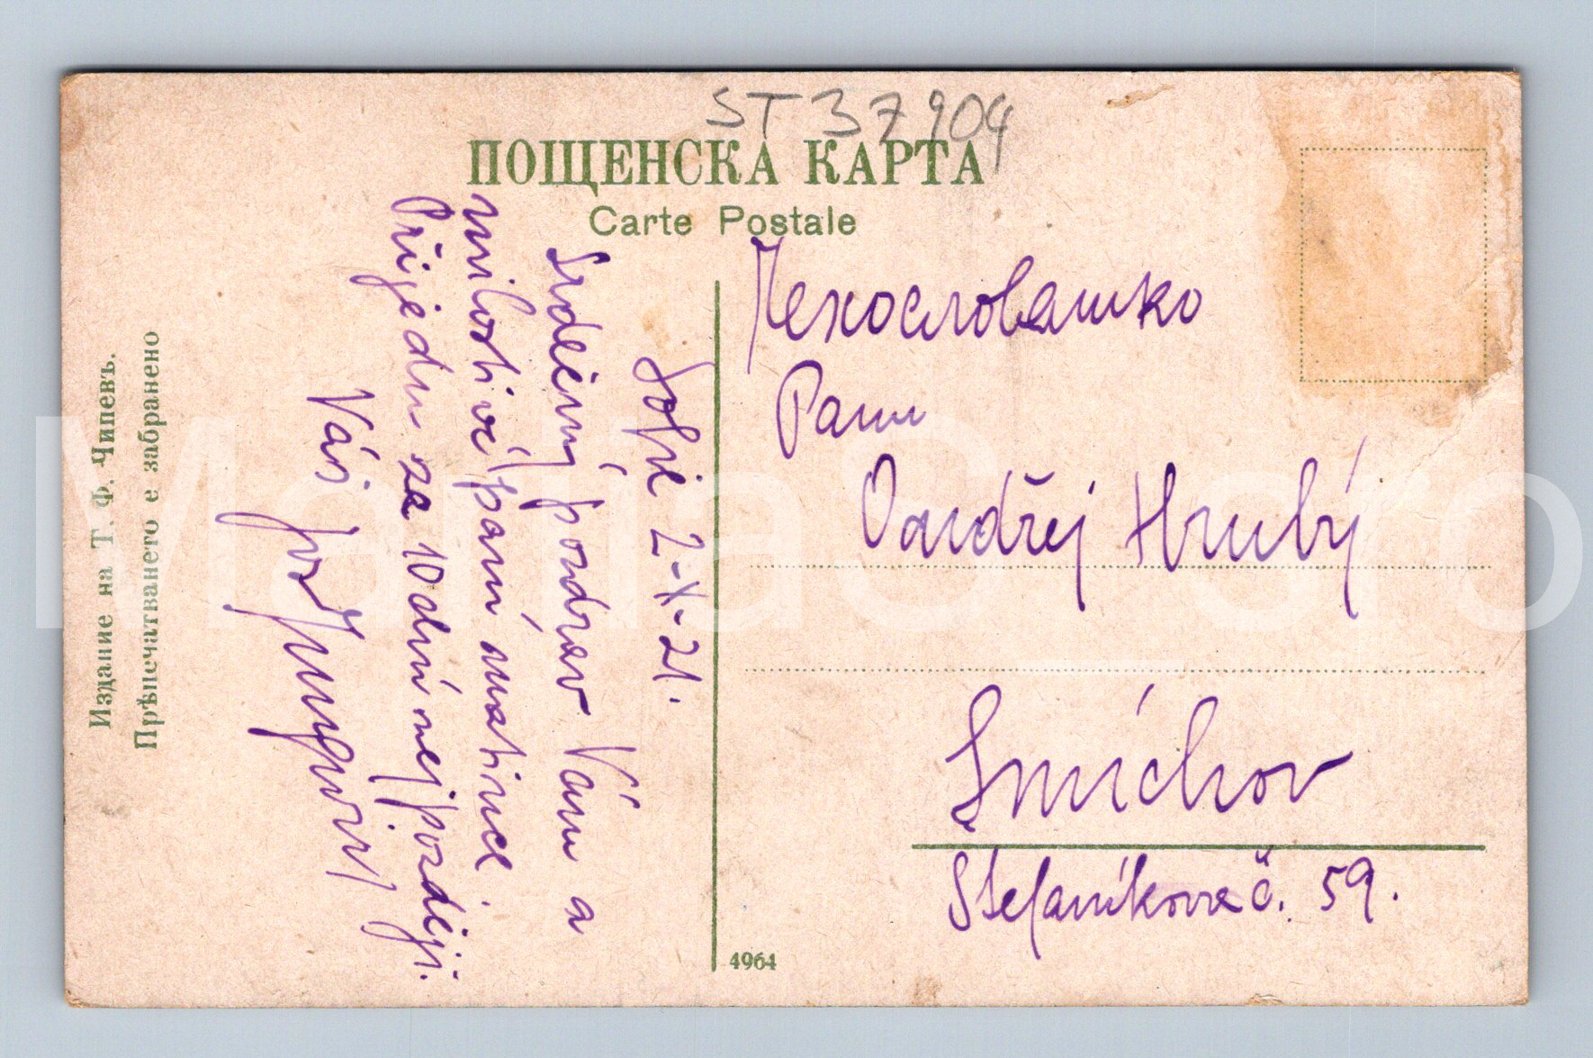 ST 37904
ПОЩЕНСКА КАРТА
Carte Postale
Sofie 2-X-21.
Srdečný pozdrav Vám a
milostivé paní matince.
Přijedu za 10 dní nejpozději.
Váš
Чехословашко
Panu
Ondřej Hrubý
Smíchov
Štefanikova č. 59.
4964
Издание на Т. Ф. Чипевъ.
Прѣпечатването е забранено